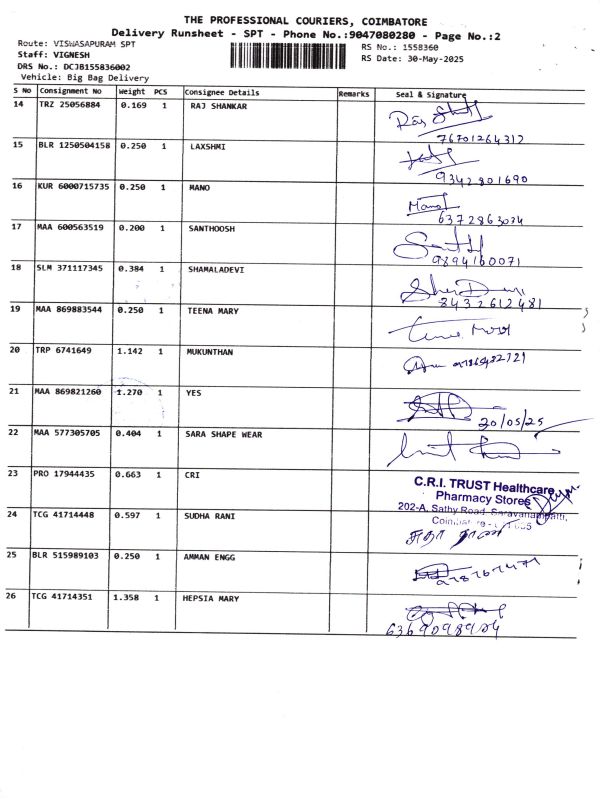 THE PROFESSIONAL COURIERS, COIMBATORE
Delivery Runsheet - SPT - Phone No.:9047080280 - Page No.:2
Route: VISWASAPURAM SPT
Staff: VIGNESH
DRS No.: DCJB155836002
Vehicle: Big Bag Delivery
RS No.: 1558360
RS Date: 30-May-2025
S No Consignment No Weight PCS Consignee Details Remarks Seal & Signature
14 TRZ 25056884 0.169 1 RAJ SHANKAR
7670126431?
15 BLR 1250504158 0.250 1 LAXSHMI
9342801690
16 KUR 6000715735 0.250 1 MANO Mano
6372863034
17 MAA 600563519 0.200 1 SANTHOOSH
9894160071
18 SLM 371117345 0.384 1 SHAMALADEVI
8432612481
19 MAA 869883544 0.250 1 TEENA MARY
20 TRP 6741649 1.142 1 MUKUNTHAN
21 MAA 869821260 1.270 1 YES
20/05/25
22 MAA 577305705 0.404 1 SARA SHAPE WEAR
23 PRO 17944435 0.663 1 CRI
C.R.I. TRUST Healthcare
Pharmacy Stores
202-A, Sathy Road, Saravanampatti,
24 TCG 41714448 0.597 1 SUDHA RANI
சுதா ராணி
25 BLR 515989103 0.250 1 AMMAN ENGG
26 TCG 41714351 1.358 1 HEPSIA MARY